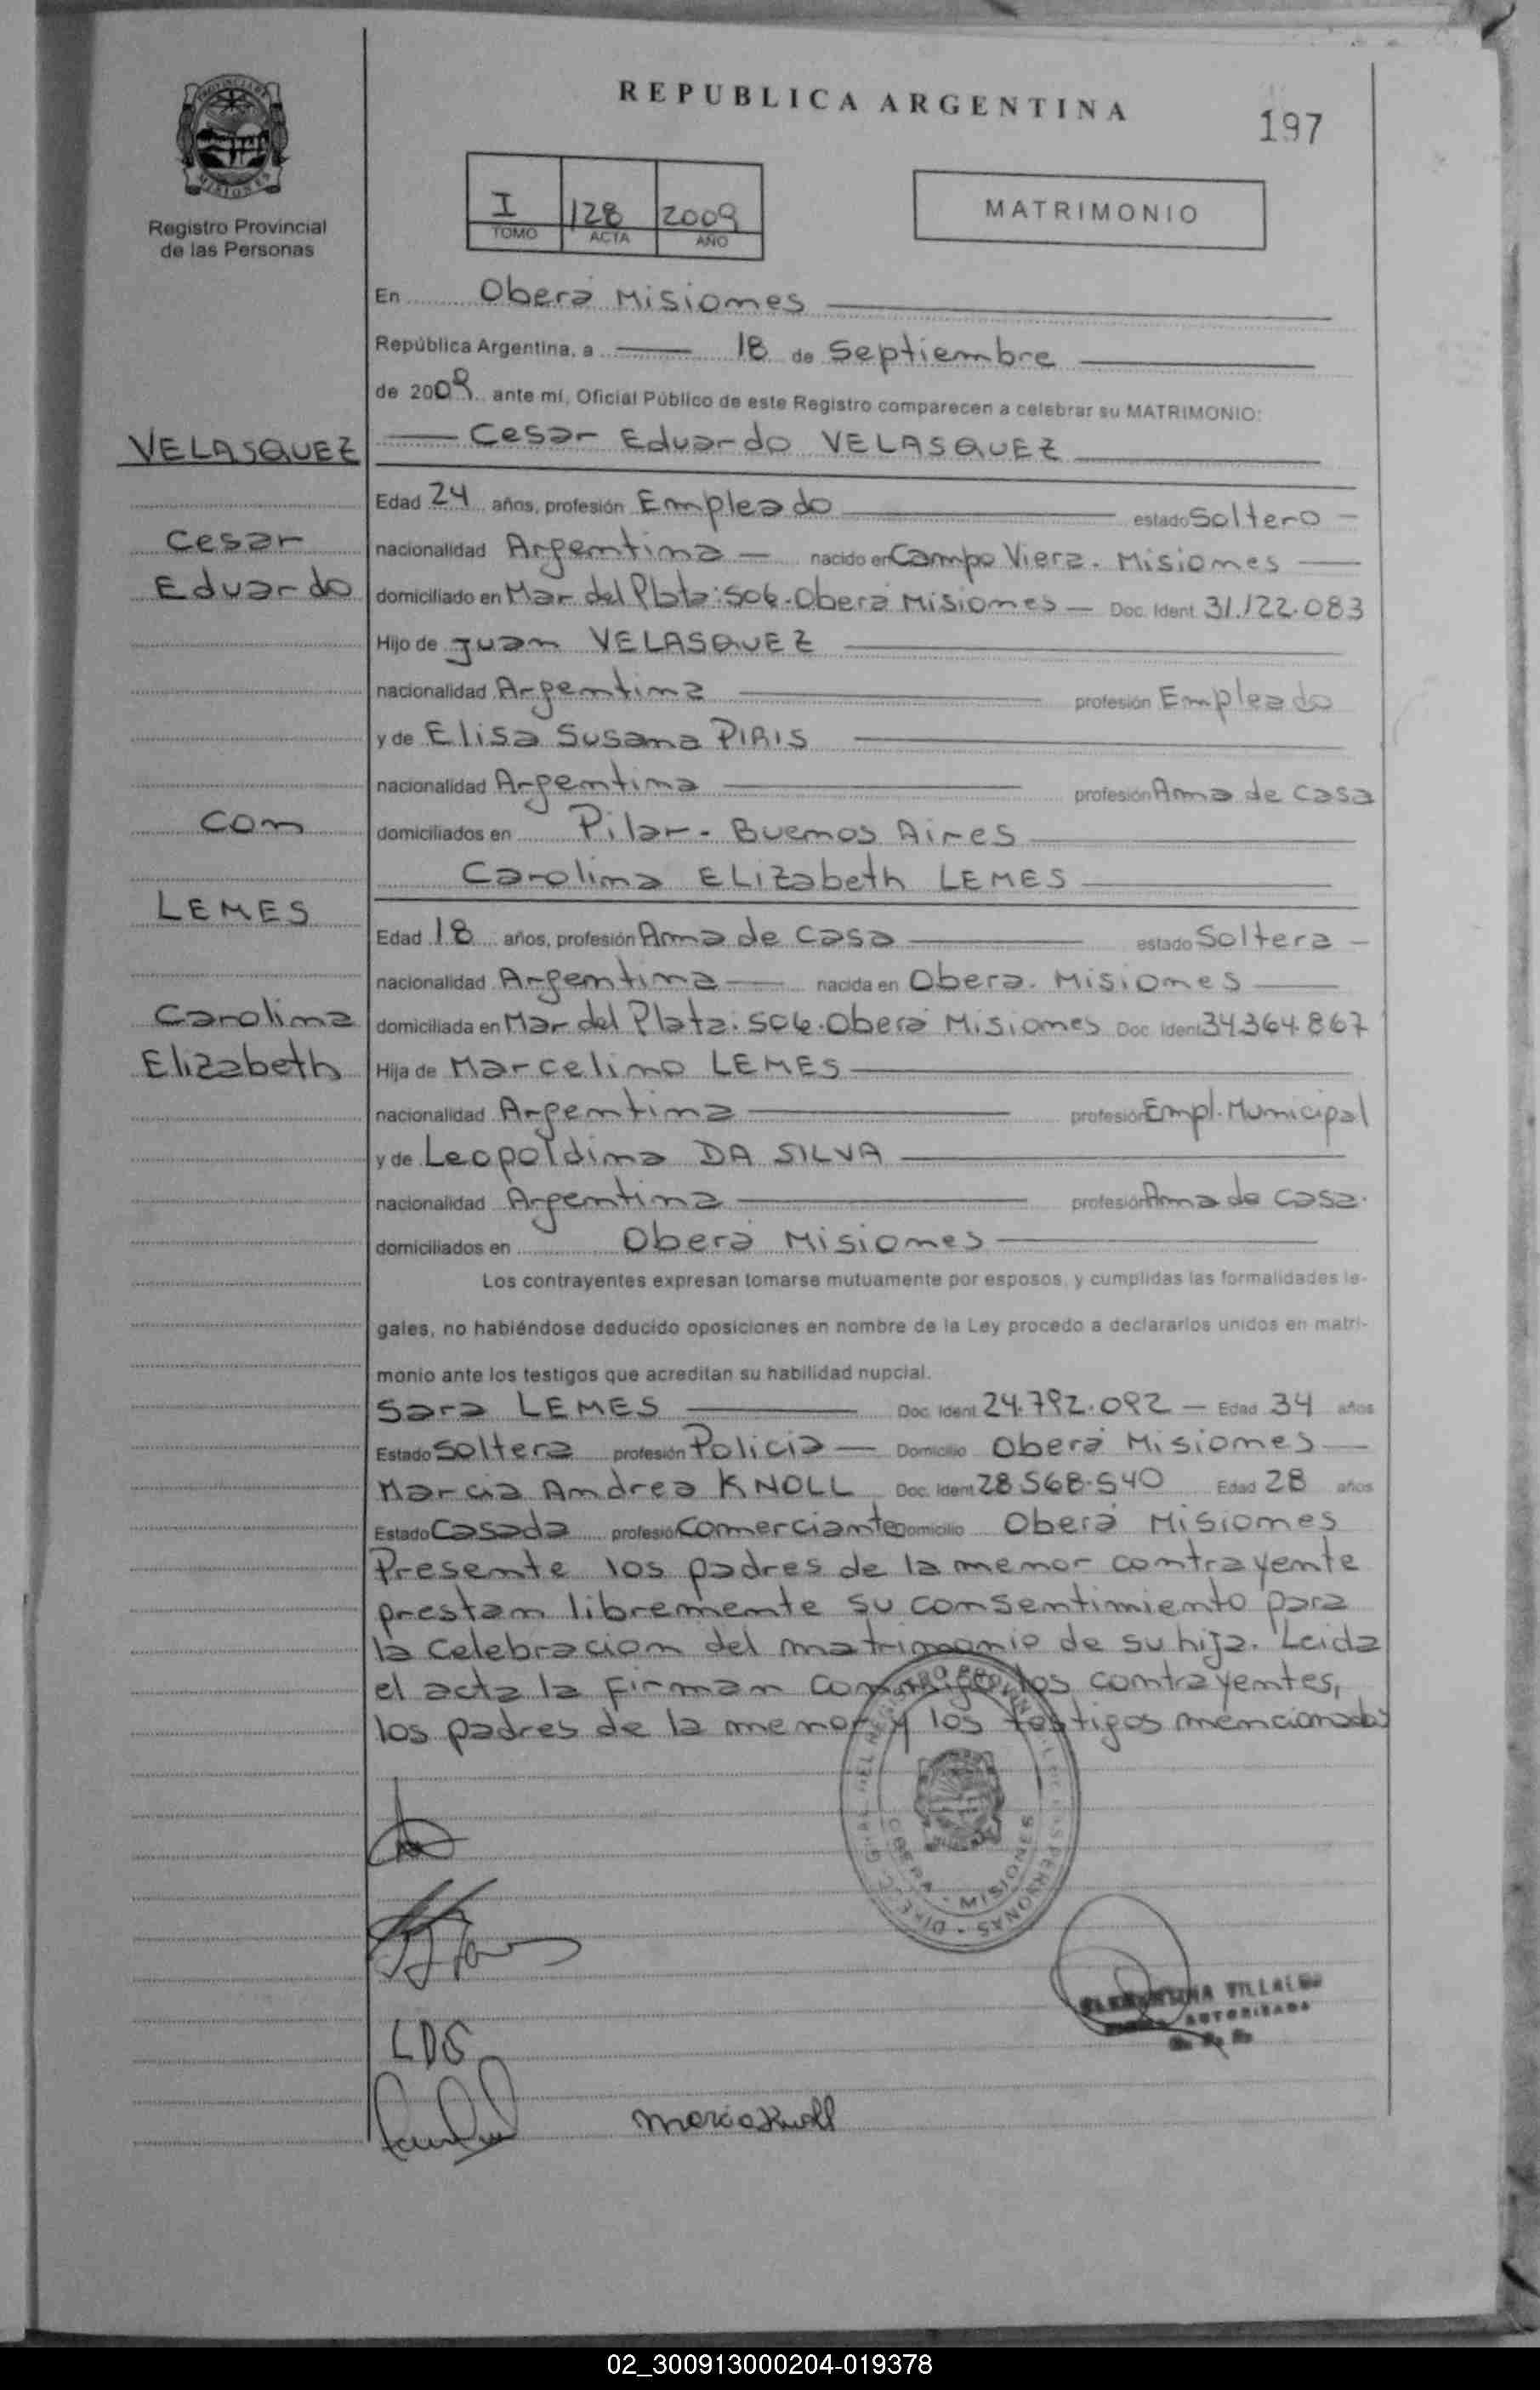 REPUBLICA ARGENTINA
197
PROVINCIA DE
MISIONES
Registro Provincial
de las Personas
I 128 2009
TOMO ACTA AÑO
MATRIMONIO
En Oberá Misiones
República Argentina, a 18 de Septiembre
de 2009 ante mí, Oficial Público de este Registro comparecen a celebrar su MATRIMONIO:
VELASQUEZ Cesar Eduardo VELASQUEZ
Edad 24 años, profesión Empleado estado Soltero
Cesar nacionalidad Argentina nacido en Campo Viera. Misiones
Eduardo domiciliado en Mar del Plata: 506. Oberá Misiones Doc. Ident 31.122.083
Hijo de Juan VELASQUEZ
nacionalidad Argentina profesión Empleado
y de Elisa Susana PIRIS
nacionalidad Argentina profesión Ama de casa
con domiciliados en Pilar - Buenos Aires
Carolina ELizabeth LEMES
LEMES
Edad 18 años, profesión Ama de casa estado Soltera
nacionalidad Argentina nacida en Obera. Misiones
Carolina domiciliada en Mar del Plata. 506. Oberá Misiones Doc. Ident 34.364.867
Elizabeth Hija de Marcelino LEMES
nacionalidad Argentina profesión Empl. Municipal
y de Leopoldina DA SILVA
nacionalidad Argentina profesión Ama de casa.
domiciliados en Oberá Misiones
Los contrayentes expresan tomarse mutuamente por esposos, y cumplidas las formalidades le-
gales, no habiéndose deducido oposiciones en nombre de la Ley procedo a declararlos unidos en matri-
monio ante los testigos que acreditan su habilidad nupcial.
Sara LEMES Doc. Ident 24.792.092 Edad 34 años
Estado Soltera profesión Policia Domicilio Oberá Misiones
Marcia Andrea KNOLL Doc. Ident 28.568.540 Edad 28 años
Estado Casada profesión Comerciante Domicilio Oberá Misiones
Presente los padres de la menor contrayente
prestan libremente su consentimiento para
la celebracion del matrimonio de su hija. Leida
el acta la firman conmigo los contrayentes,
los padres de la menor y los testigos mencionados
OBERA - MISIONES
VILLALBA
AUTORIZADA
LDS
Marcia Knoll
02_300913000204-019378